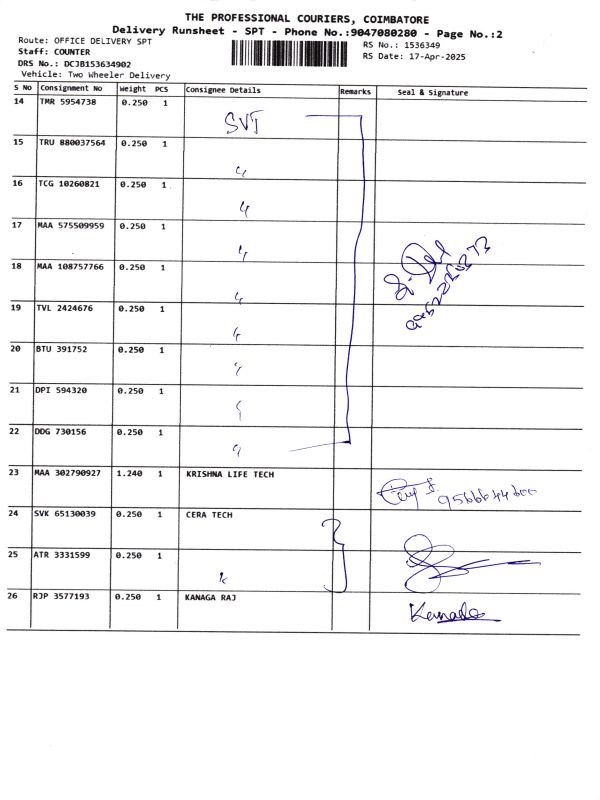 THE PROFESSIONAL COURIERS, COIMBATORE
Delivery Runsheet - SPT - Phone No.:9047080280 - Page No.:2
Route: OFFICE DELIVERY SPT
RS No.: 1536349
Staff: COUNTER
RS Date: 17-Apr-2025
DRS No.: DCJB153634902
Vehicle: Two Wheeler Delivery
S No Consignment No Weight PCS Consignee Details Remarks Seal & Signature
14 TMR 5954738 0.250 1 SVT
15 TRU 880037564 0.250 1 "
16 TCG 10260821 0.250 1 "
17 MAA 575509959 0.250 1 "
18 MAA 108757766 0.250 1 "
19 TVL 2424676 0.250 1 "
20 BTU 391752 0.250 1 "
21 DPI 594320 0.250 1 "
22 DDG 730156 0.250 1 "
23 MAA 302790927 1.240 1 KRISHNA LIFE TECH 9566644600
24 SVK 65130039 0.250 1 CERA TECH
25 ATR 3331599 0.250 1 "
26 RJP 3577193 0.250 1 KANAGA RAJ